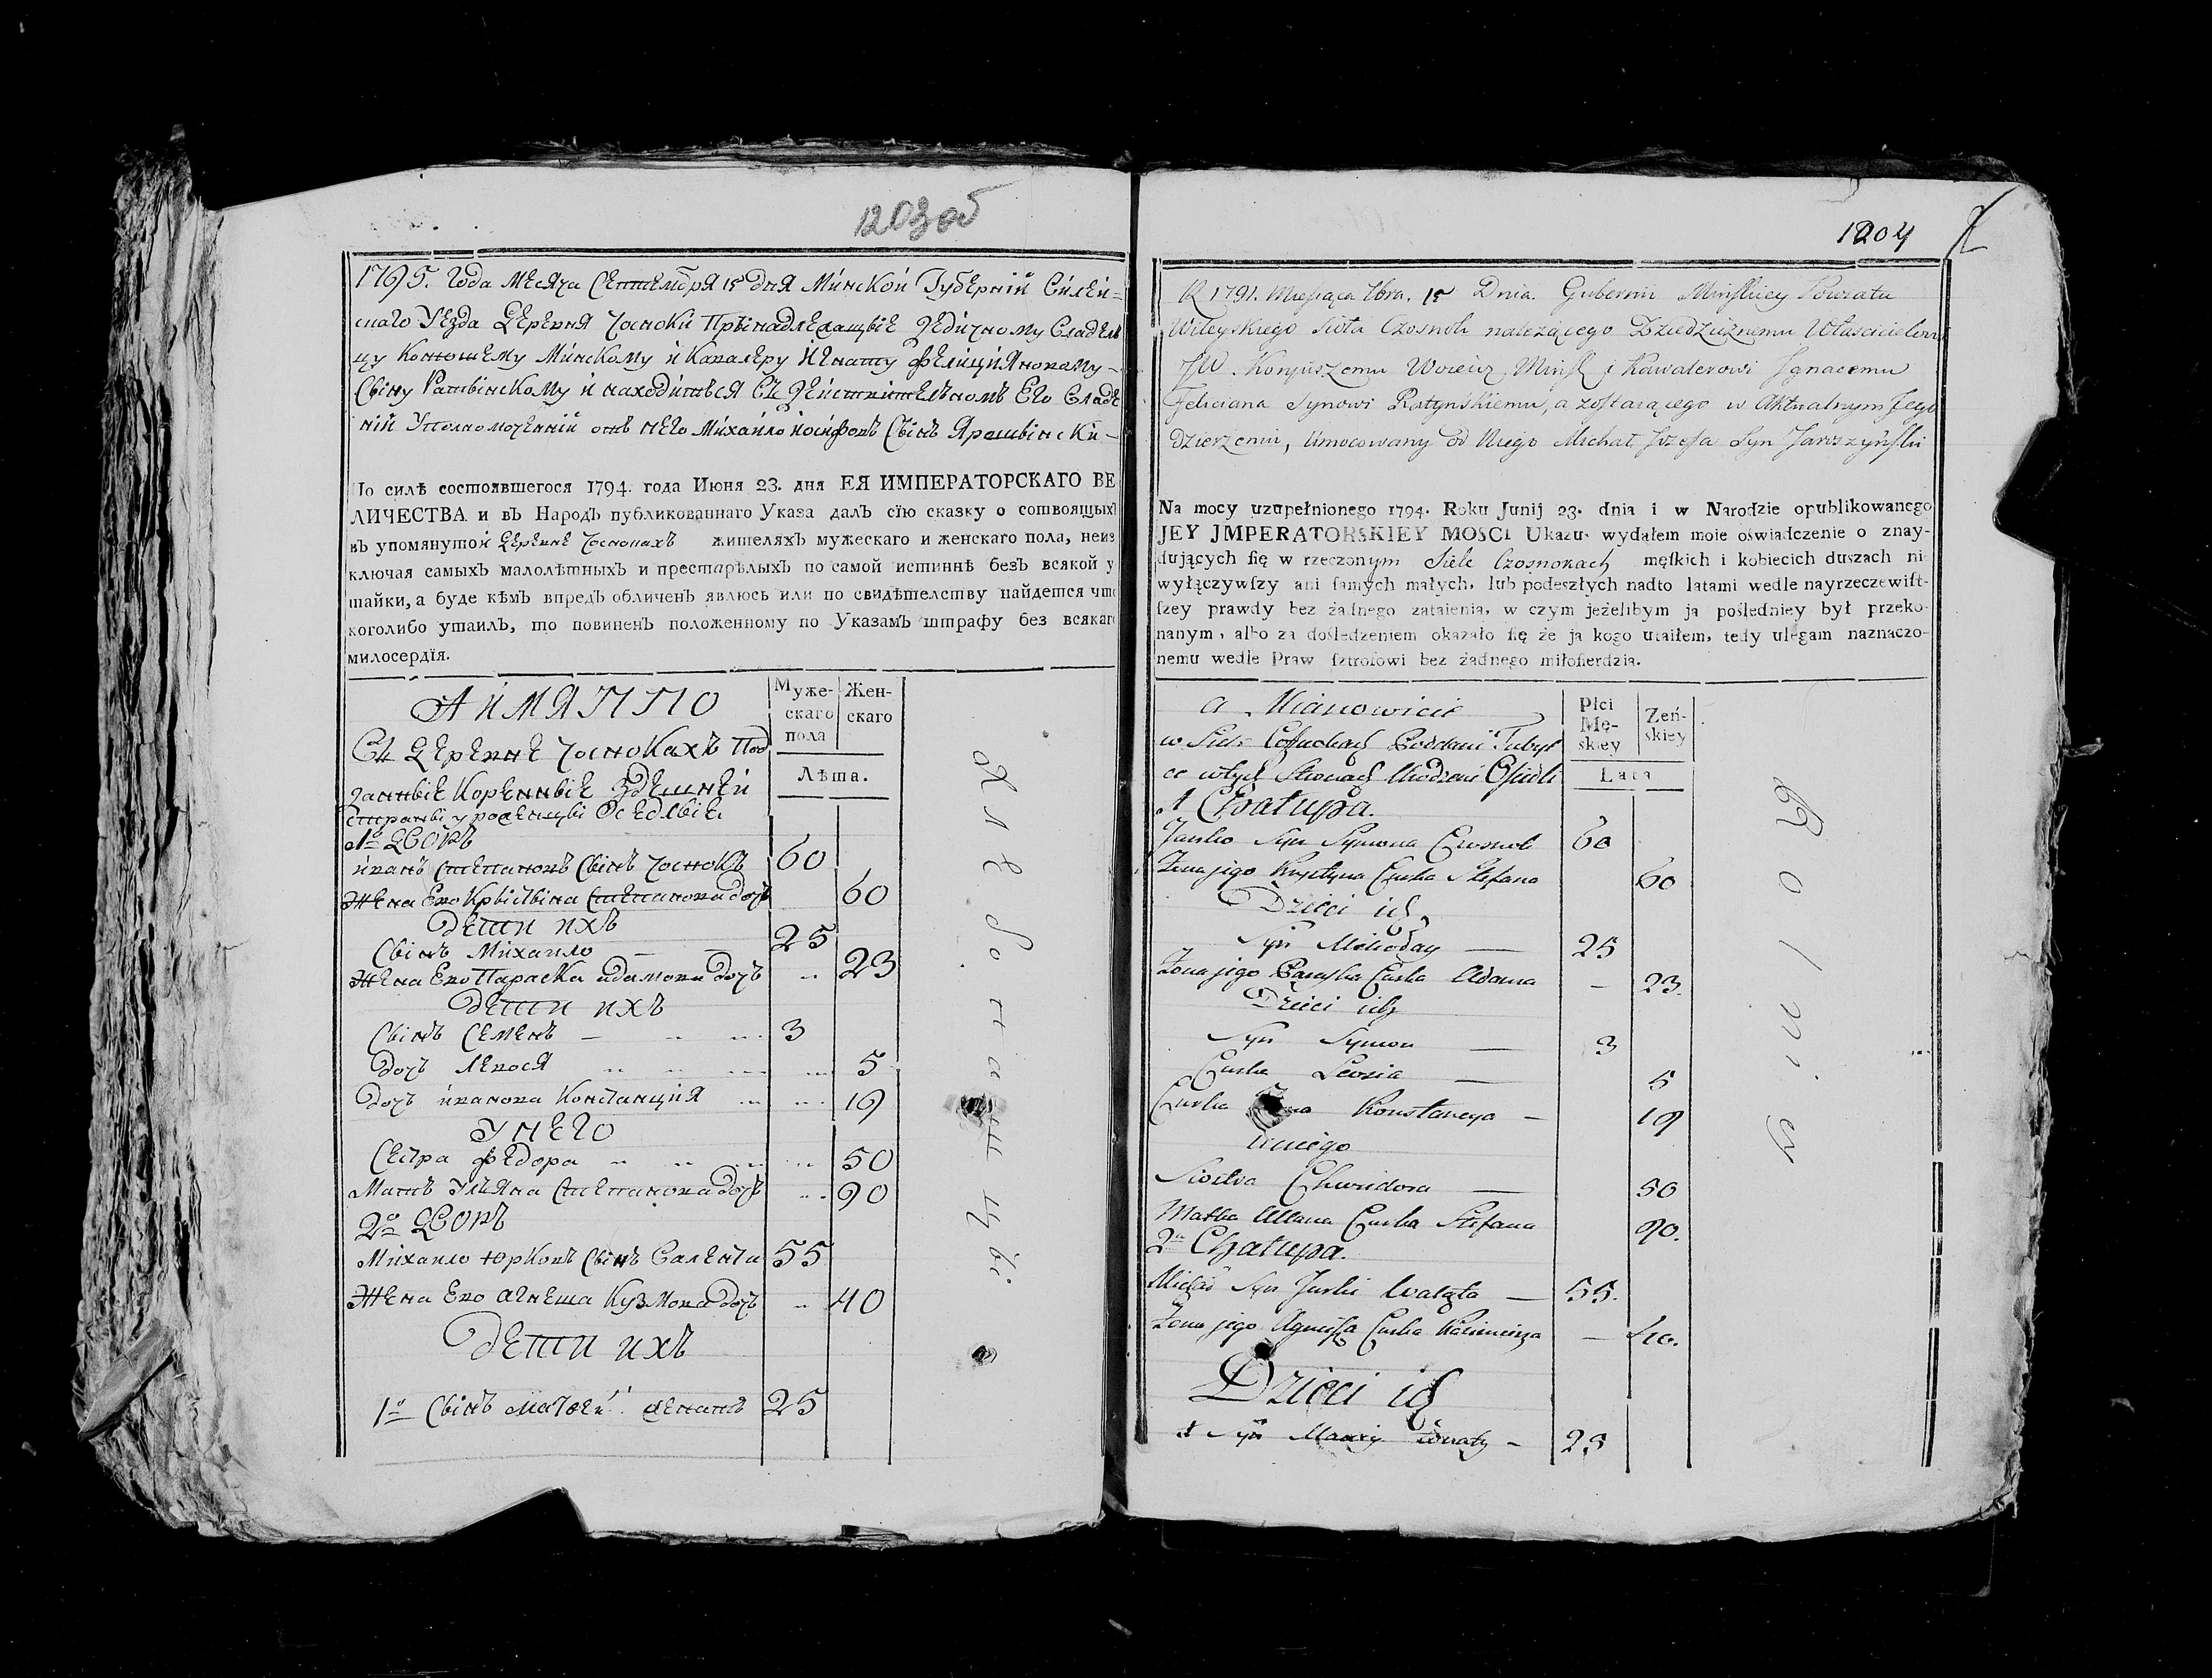 1203об
1795. Года месяца Септембря 15 дня Минской Губернїй Вилей=
скаго Уезда Деревня Чосноки Прынадлежащые Дедичному Владель
цу Конюшему Минскому и Кавалеру Игнату Фелицияновому
Сыну Ратынскому и находится въ Действительномъ Его Владе
ний Уполномоченый отъ него Михайло Иосифовъ Сынъ Ярошынски
По силѣ состоявшегося 1794. года Июня 23. дня ЕЯ ИМПЕРАТОРСКАГО ВЕ
ЛИЧЕСТВА и въ Народъ публикованнаго Указа далъ сїю сказку о сотвоящыхъ
въ упомянутой Деревне Чосноках жителяхъ мужескаго и женскаго пола, неиз
ключая самыхъ малолѣтныхъ и престарѣлыхъ по самой истиннѣ безъ всякой у
тайки, а буде кѣмъ впредь обличенъ явлюсь или по свидѣтелству найдется что
коголибо утаилъ, то повиненъ положенному по Указамъ штрафу без всякаго
милосердїя.
А ИМЯННО
Въ Деревне Чосноках Под
даные Коренные Здешней
Стораны урожденцы Оседлые
Муже-
скаго
пола
Жен-
скаго
Лѣта.
1о Дворъ
Иванъ Степановъ Сынъ Чоснокъ 60
Жена Ево Крыстына Степанова дочь 60
Дети ихъ
Сынъ Михайло — 25
Жена Ево Параска Адамова дочь 23
Дети ихъ
Сынъ Семенъ — 3
Дочь Левося 5
Дочь Иванова Констанция 19
У него
Сестра Федора 50
Мать Ульяна Степанова дочь 90
2о Дворъ
Михайло Юрковъ Сынъ Валента 55
Жена Ево Агнеша Кузмова дочь 40
Дети ихъ
1о Сынъ Матвей женатъ 25
1204
R 1791. Miesiąca 7bra. 15 Dnia. Gubernii Minskiey Powiatu
Wileyskiego Sioła Czosnok należącego Dziedzicznemu Właścicielowi
JW. Koniuszemu Woiewz Minsk i Kawalerowi Jgnacemu
Feliciana Synowi Ratyńskiemu, a zostaiącego w Aktualnym Jego
dzierżeniu, Umocowany od Niego Michał Jozefa Syn Jaroszyński
Na mocy uzupełnionego 1794. Roku Junij 23. dnia i w Narodzie opublikowanego
JEY JMPERATORSKIEY MOSCI Ukazu. wydałem moie oświadczenie o znay-
duiących ſię w rzeczonym Siele Czosnokach męſkich i kobiecich duszach ni
wyłączywſzy ani ſamych małych, lub podeszłych nadto latami wedle nayrzeczewiſt-
ſzey prawdy bez żadnego zataienia, w czym jeżelibym ja poślednie​y był przeko-
nanym, albo za dośledzeniem okazało ſię że ja kogo utaiłem, tedy ulegam naznaczo-
nemu wedle Praw ſztrofowi bez żadnego miłoſierdzia.
a Mianowicie
w Siele Czosnokach Poddani Tubyl
ce w tych Stronach Urodzeni Osiedli
Płci
Mę-
skiey
Zeń-
skiey
Lata
1 Chałupa.
Janko Syn Symona Czosnok 60
Żona jego Krystyna Curka Stefana 60
Dzieci ich
Syn Mikołay — 25
Żona jego Paraska Curka Adama — 23.
Dzieci ich
Syn Symon — 3
Curka Leosia — 5
Curka Konstancya — 19
U niego
Siostra Chwiedora — 50
Matka Ullana Curka Stefana 90.
2a Chałupa.
Michaś Syn Jurki Walęta — 55.
Żona jego Agnieszka Curka Kazimierza — 40.
Dzieci ich
1 Syn Maciey żonaty — 25